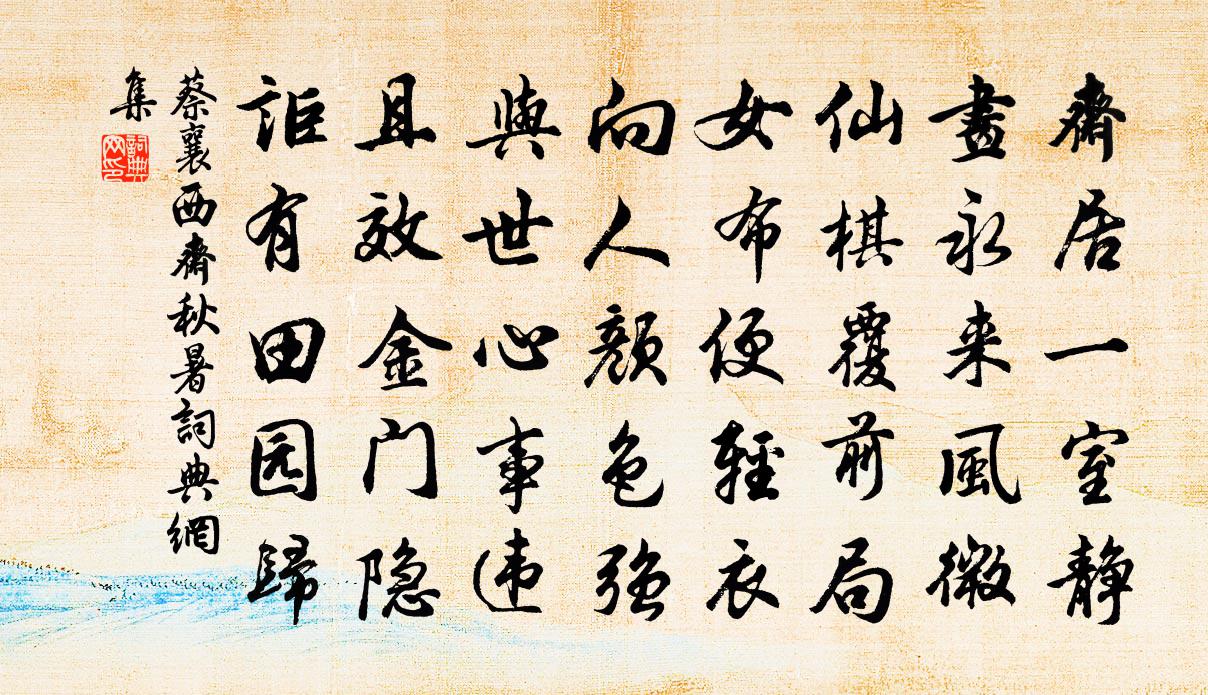 齋居一室靜
晝永来風微
仙棋覆前局
女布便輕衣
向人顔色强
與世心事违
且效金门隐
詎有田园歸
蔡襄西齋秋暑詞典網
集
詞典
网印